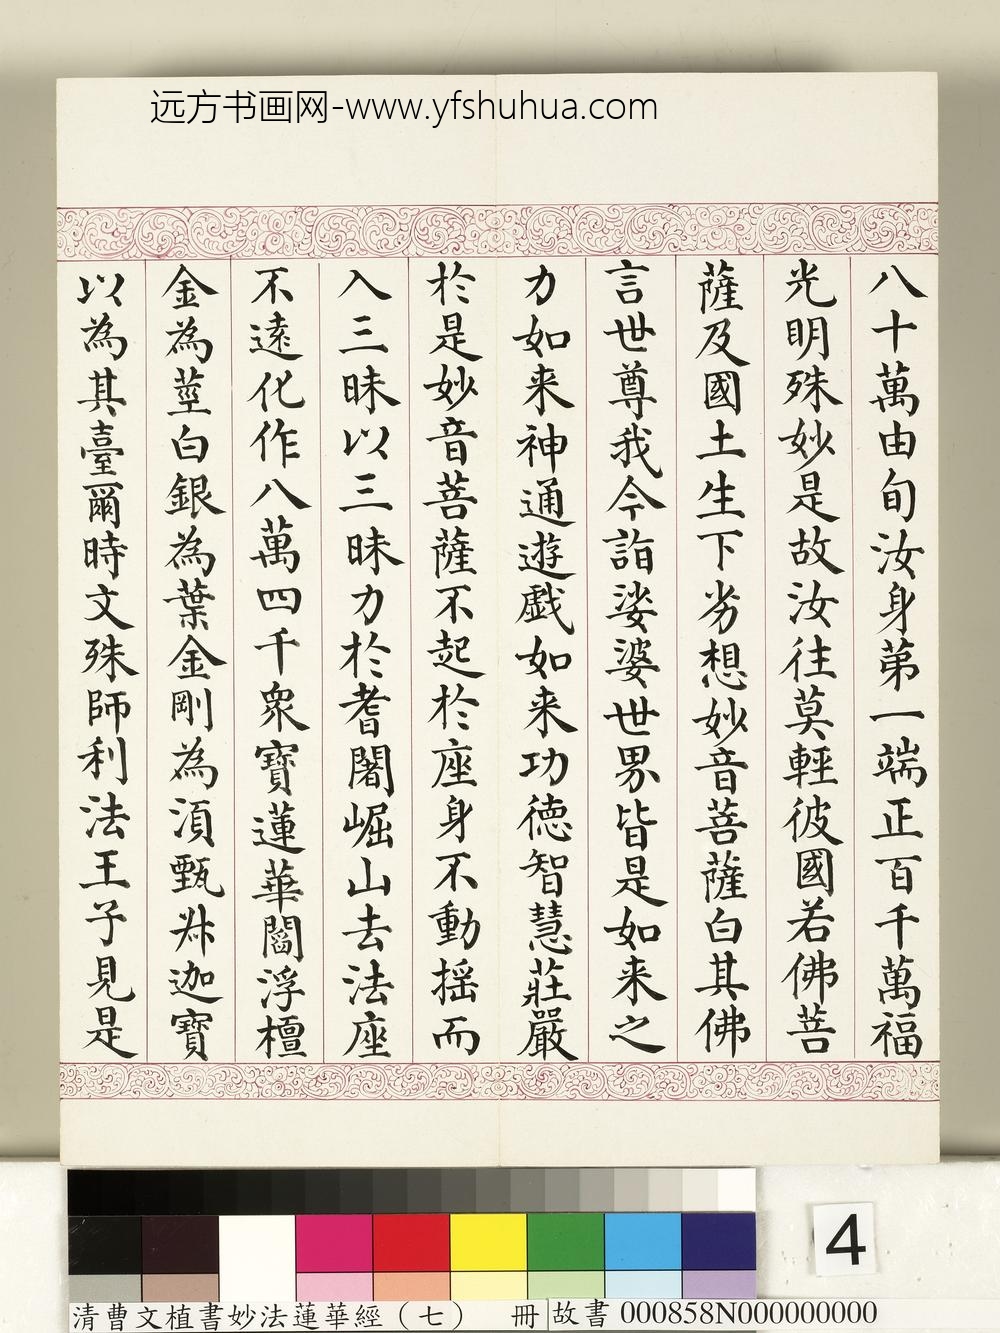 远方书画网-www.yfshuhua.com
八十萬由旬汝身第一端正百千萬福
光明殊妙是故汝往莫輕彼國若佛菩
薩及國土生下劣想妙音菩薩白其佛
言世尊我今詣娑婆世界皆是如来之
力如来神通遊戲如来功德智慧莊嚴
於是妙音菩薩不起於座身不動揺而
入三昧以三昧力於耆闍崛山去法座
不遠化作八萬四千眾寶蓮華閻浮檀
金為莖白銀為葉金剛為湏甄叔迦寶
以為其臺爾時文殊師利法王子見是
4
清曹文植書妙法蓮華經（七） 冊 故書 000858N000000000